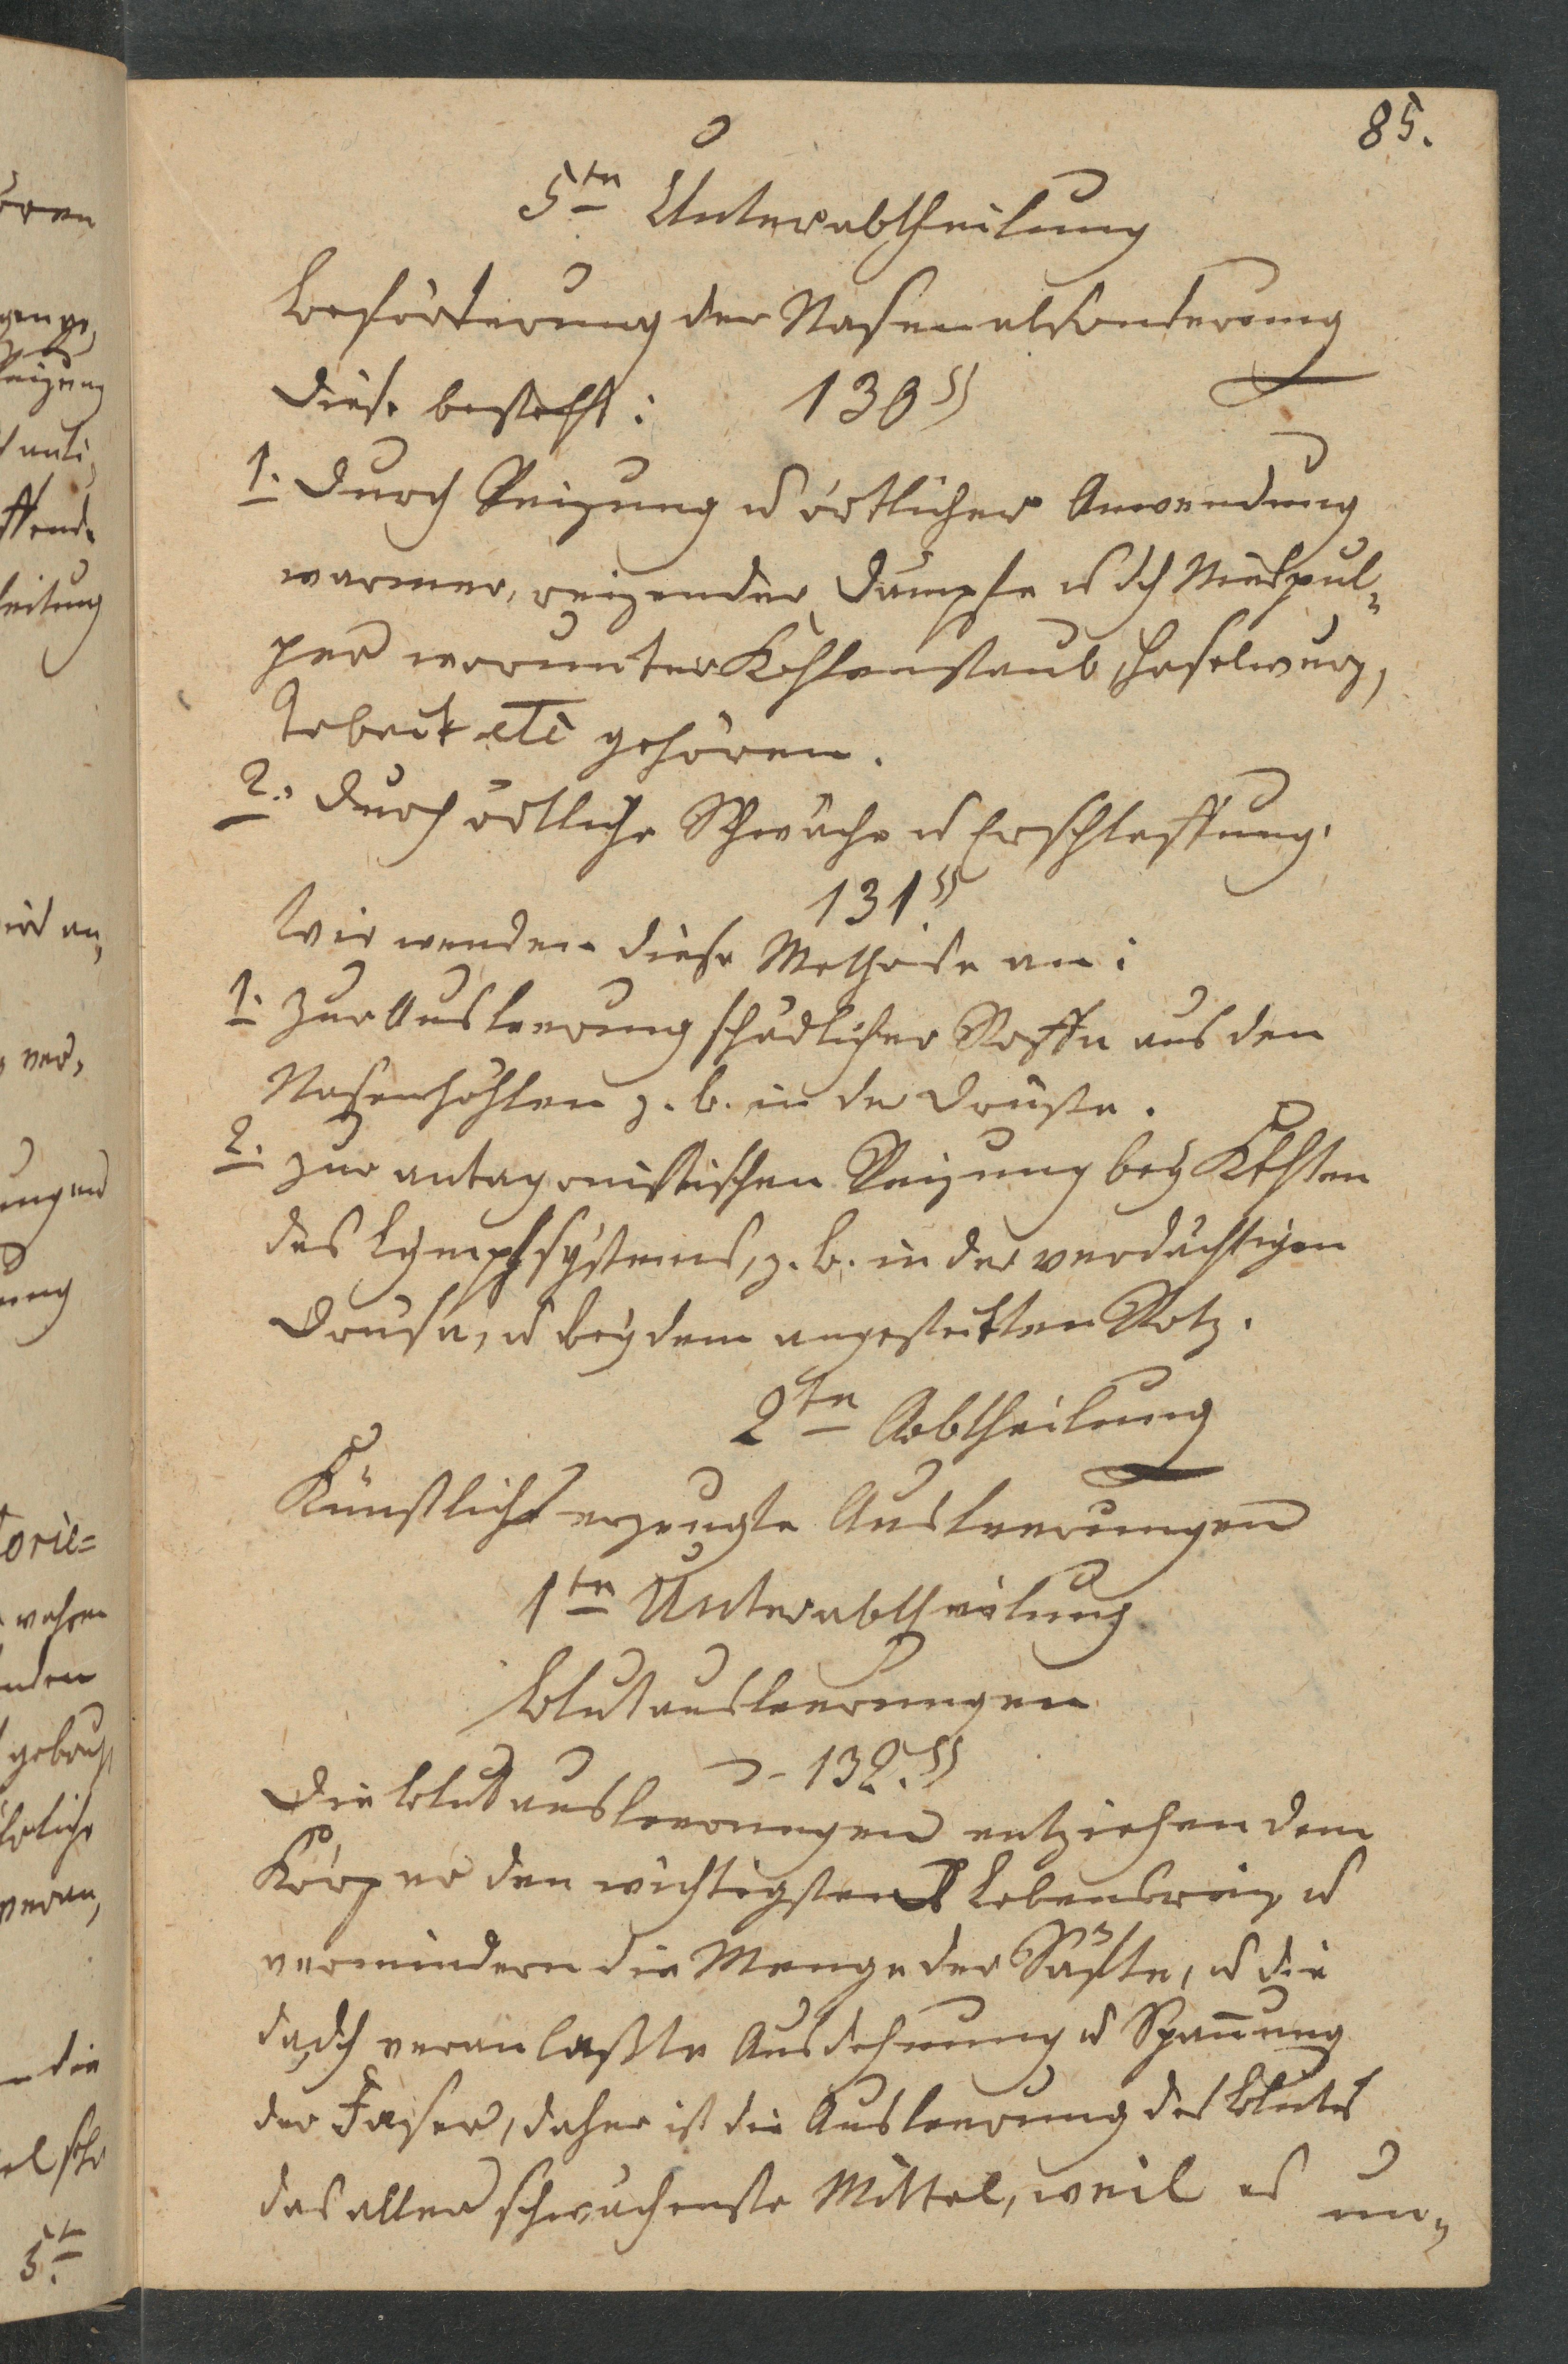 85.
5te Unterabtheilung
Beförderung der Nasenabsonderung
130§
Diese besteht:
1. Durch Reizung u örtlicher Anwendung
warmer, reizender Dämpfe u dch Niespul„
ver worunter Kohlenstaub, Haselwurz,
Tabak etc gehören.
2. Durch örtliche Schwäche u Erschlaffung.
131§
Wir wenden diese Methode an:
1. Zur Ausleerung schädlicher Stoffe aus den
Nasenhöhlen z. b. in der Druse.
2. zur antagonistischen Reizung bey Kkhten
des Lymphsystems, z. b. in der verdächtigen
Druse, u bey dem angestekten Rotz.
2te Abtheilung
Künstlich erzeugte Ausleerungen
1te Unterabtheilung
Blutausleerungen
132.§
Die Blutausleerungen entziehen dem
Körper den wichtigsten Lebensreiz, u
vermindern die Menge der Säfte, u die
dadch veranlaßte Ausdehnung u Spañung
der Faser, daher ist die Ausleerung des Blutes
das aller schwächenste Mittel, weil es un„